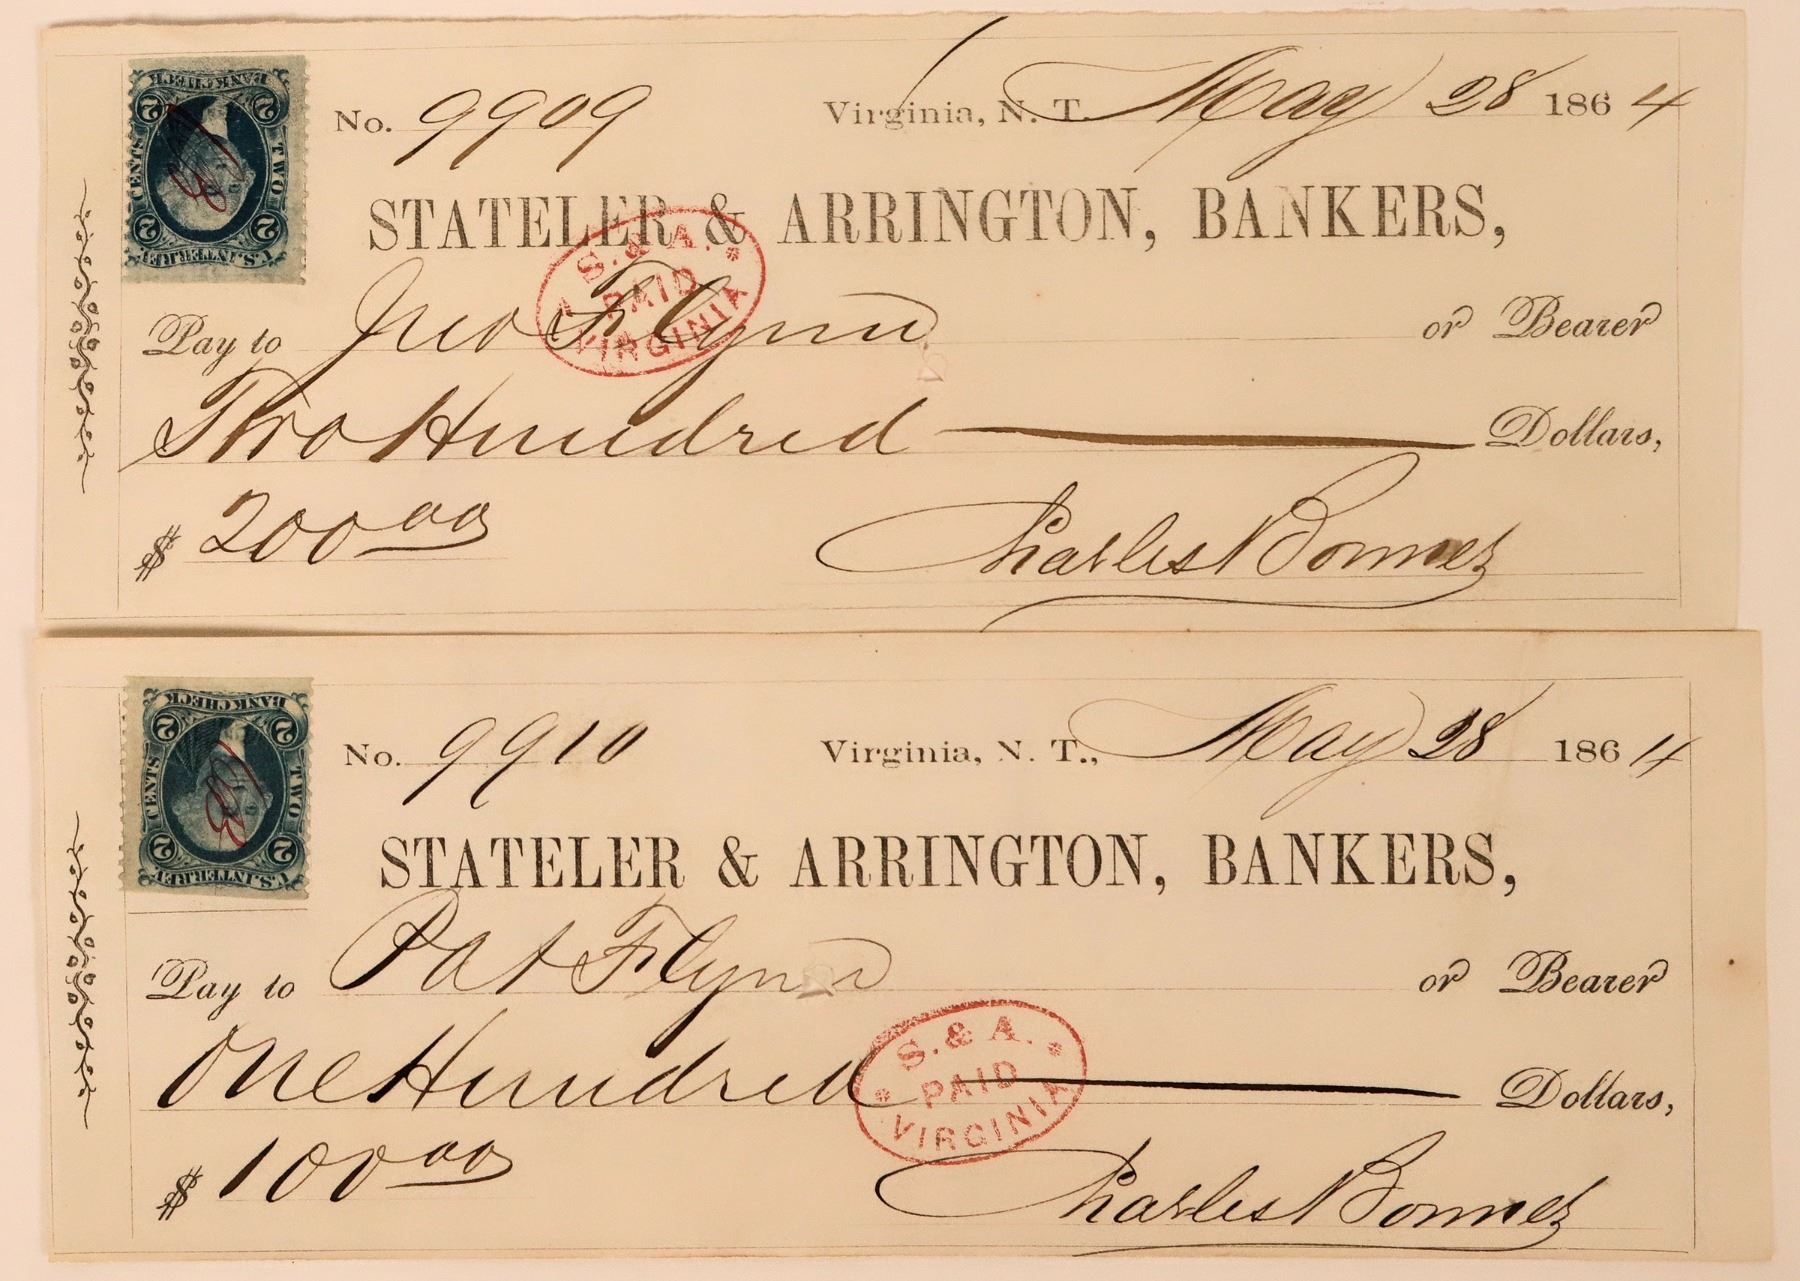 BANK CHECK
2 2
CENTS TWO
2 2
U.S. INTER. REV.
No. 9909 Virginia, N. T. May 28 1864
STATELER & ARRINGTON, BANKERS,
S. & A.
PAID
VIRGINIA
Pay to Jno Flynn or Bearer
Two Hundred Dollars,
$ 200 00
Charles Bonner
BANK CHECK
2 2
CENTS TWO
2 2
U.S. INTER. REV.
No. 9910 Virginia, N. T., May 28 1864
STATELER & ARRINGTON, BANKERS,
Pay to Pat Flynn or Bearer
One Hundred Dollars,
S. & A.
PAID
VIRGINIA
$ 100 00
Charles Bonner